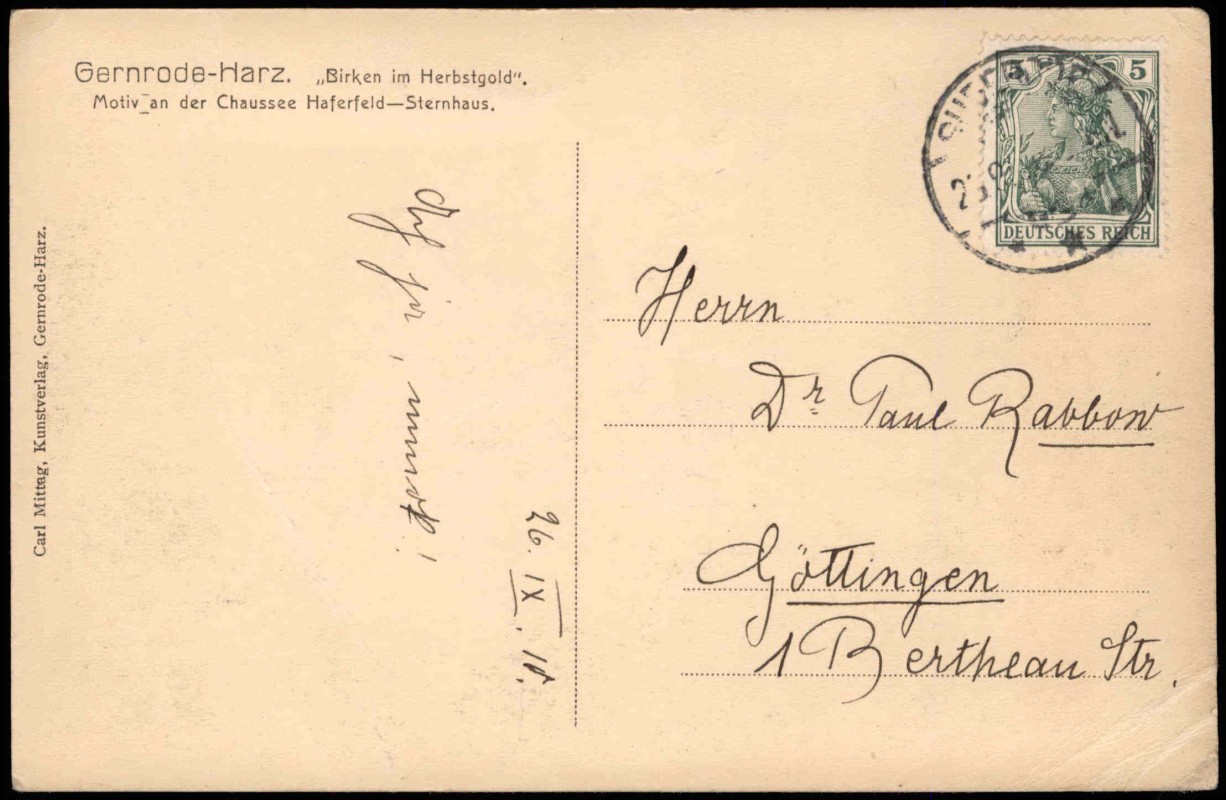 Gernrode-Harz. „Birken im Herbstgold“.
Motiv an der Chaussee Haferfeld—Sternhaus.
Carl Mittag, Kunstverlag, Gernrode-Harz.
26. IX.
5 5
DEUTSCHES REICH
Herrn
Dr Paul Rabbow
Göttingen
1 Bertheau Str.